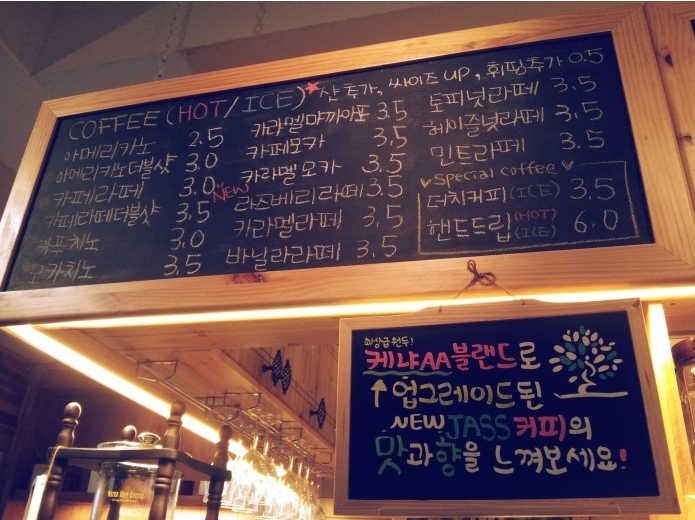 COFFEE (HOT/ICE) ★샷추가, 싸이즈 UP, 휘핑추가 0.5
아메리카노 2.5
아메리카노더블샷 3.0
카페라떼 3.0
카페라떼더블샷 3.5
카푸치노 3.0
모카치노 3.5
카라멜마끼아또 3.5
카페모카 3.5
카라멜모카 3.5
NEW 라즈베리라떼 3.5
카라멜라떼 3.5
바닐라라떼 3.5
토피넛라떼 3.5
헤이즐넛라떼 3.5
민트라떼 3.5
♥Special coffee♥
더치커피 (ICE) 3.5
핸드드립 (HOT) (ICE) 6.0
최상급 원두!
케냐AA블랜드로
↑업그레이드된
NEW JASS 커피의
맛과향을 느껴보세요!